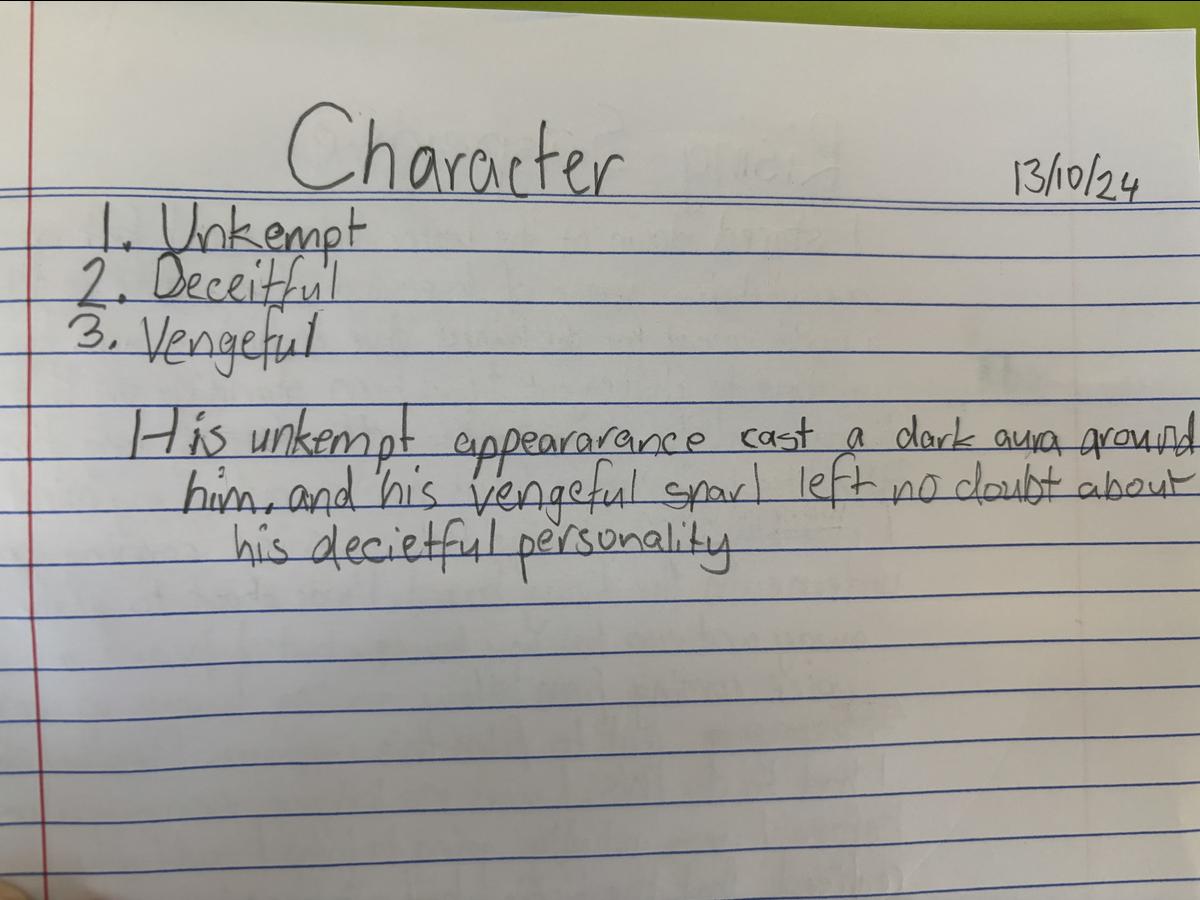 Character
13/10/24
1. Unkempt
2. Deceitful
3. Vengeful
His unkempt appeararance cast a dark aura around
him, and his vengeful snarl left no doubt about
his decietful personality